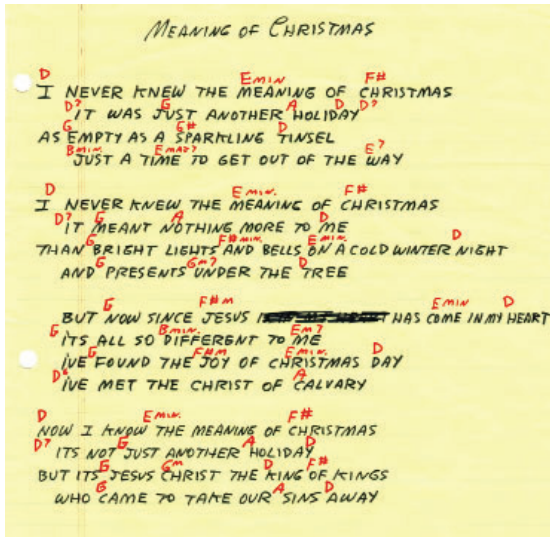 MEANING OF CHRISTMAS
D Emin F#
I NEVER KNEW THE MEANING OF CHRISTMAS
D7 G A D D7
IT WAS JUST ANOTHER HOLIDAY
G G# D
AS EMPTY AS A SPARKLING TINSEL
Bmin. Emaj7 E7
JUST A TIME TO GET OUT OF THE WAY
D Emin. F#
I NEVER KNEW THE MEANING OF CHRISTMAS
D7 G A D
IT MEANT NOTHING MORE TO ME
G F#min. Emin. D
THAN BRIGHT LIGHTS AND BELLS ON A COLD WINTER NIGHT
G Gm7 D
AND PRESENTS UNDER THE TREE
G F#m Emin D
BUT NOW SINCE JESUS HAS COME IN MY HEART
G Bmin. Em7
ITS ALL SO DIFFERENT TO ME
G F#m Emin. D
I'VE FOUND THE JOY OF CHRISTMAS DAY
A
I'VE MET THE CHRIST OF CALVARY
D Emin. F#
NOW I KNOW THE MEANING OF CHRISTMAS
D7 G A D
ITS NOT JUST ANOTHER HOLIDAY
G Gm D F#
BUT ITS JESUS CHRIST THE KING OF KINGS
G A D
WHO CAME TO TAKE OUR SINS AWAY